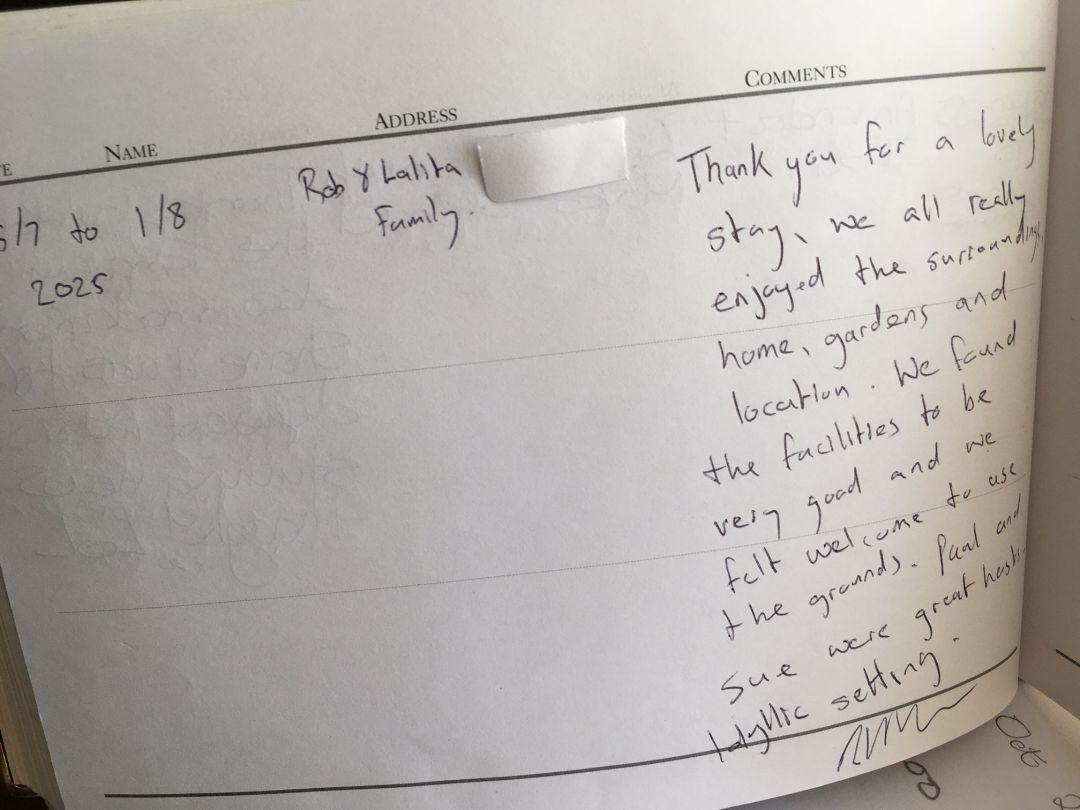 NAME ADDRESS COMMENTS
to 1/8
2025
Rob & Lalita
Family.
Thank you for a lovely
stay, we all really
enjoyed the surroundings,
home, gardens and
location. We found
the facilities to be
very good and we
felt welcome to use
the grounds. Paul and
Sue were great hosts.
Idyllic setting.
Oct